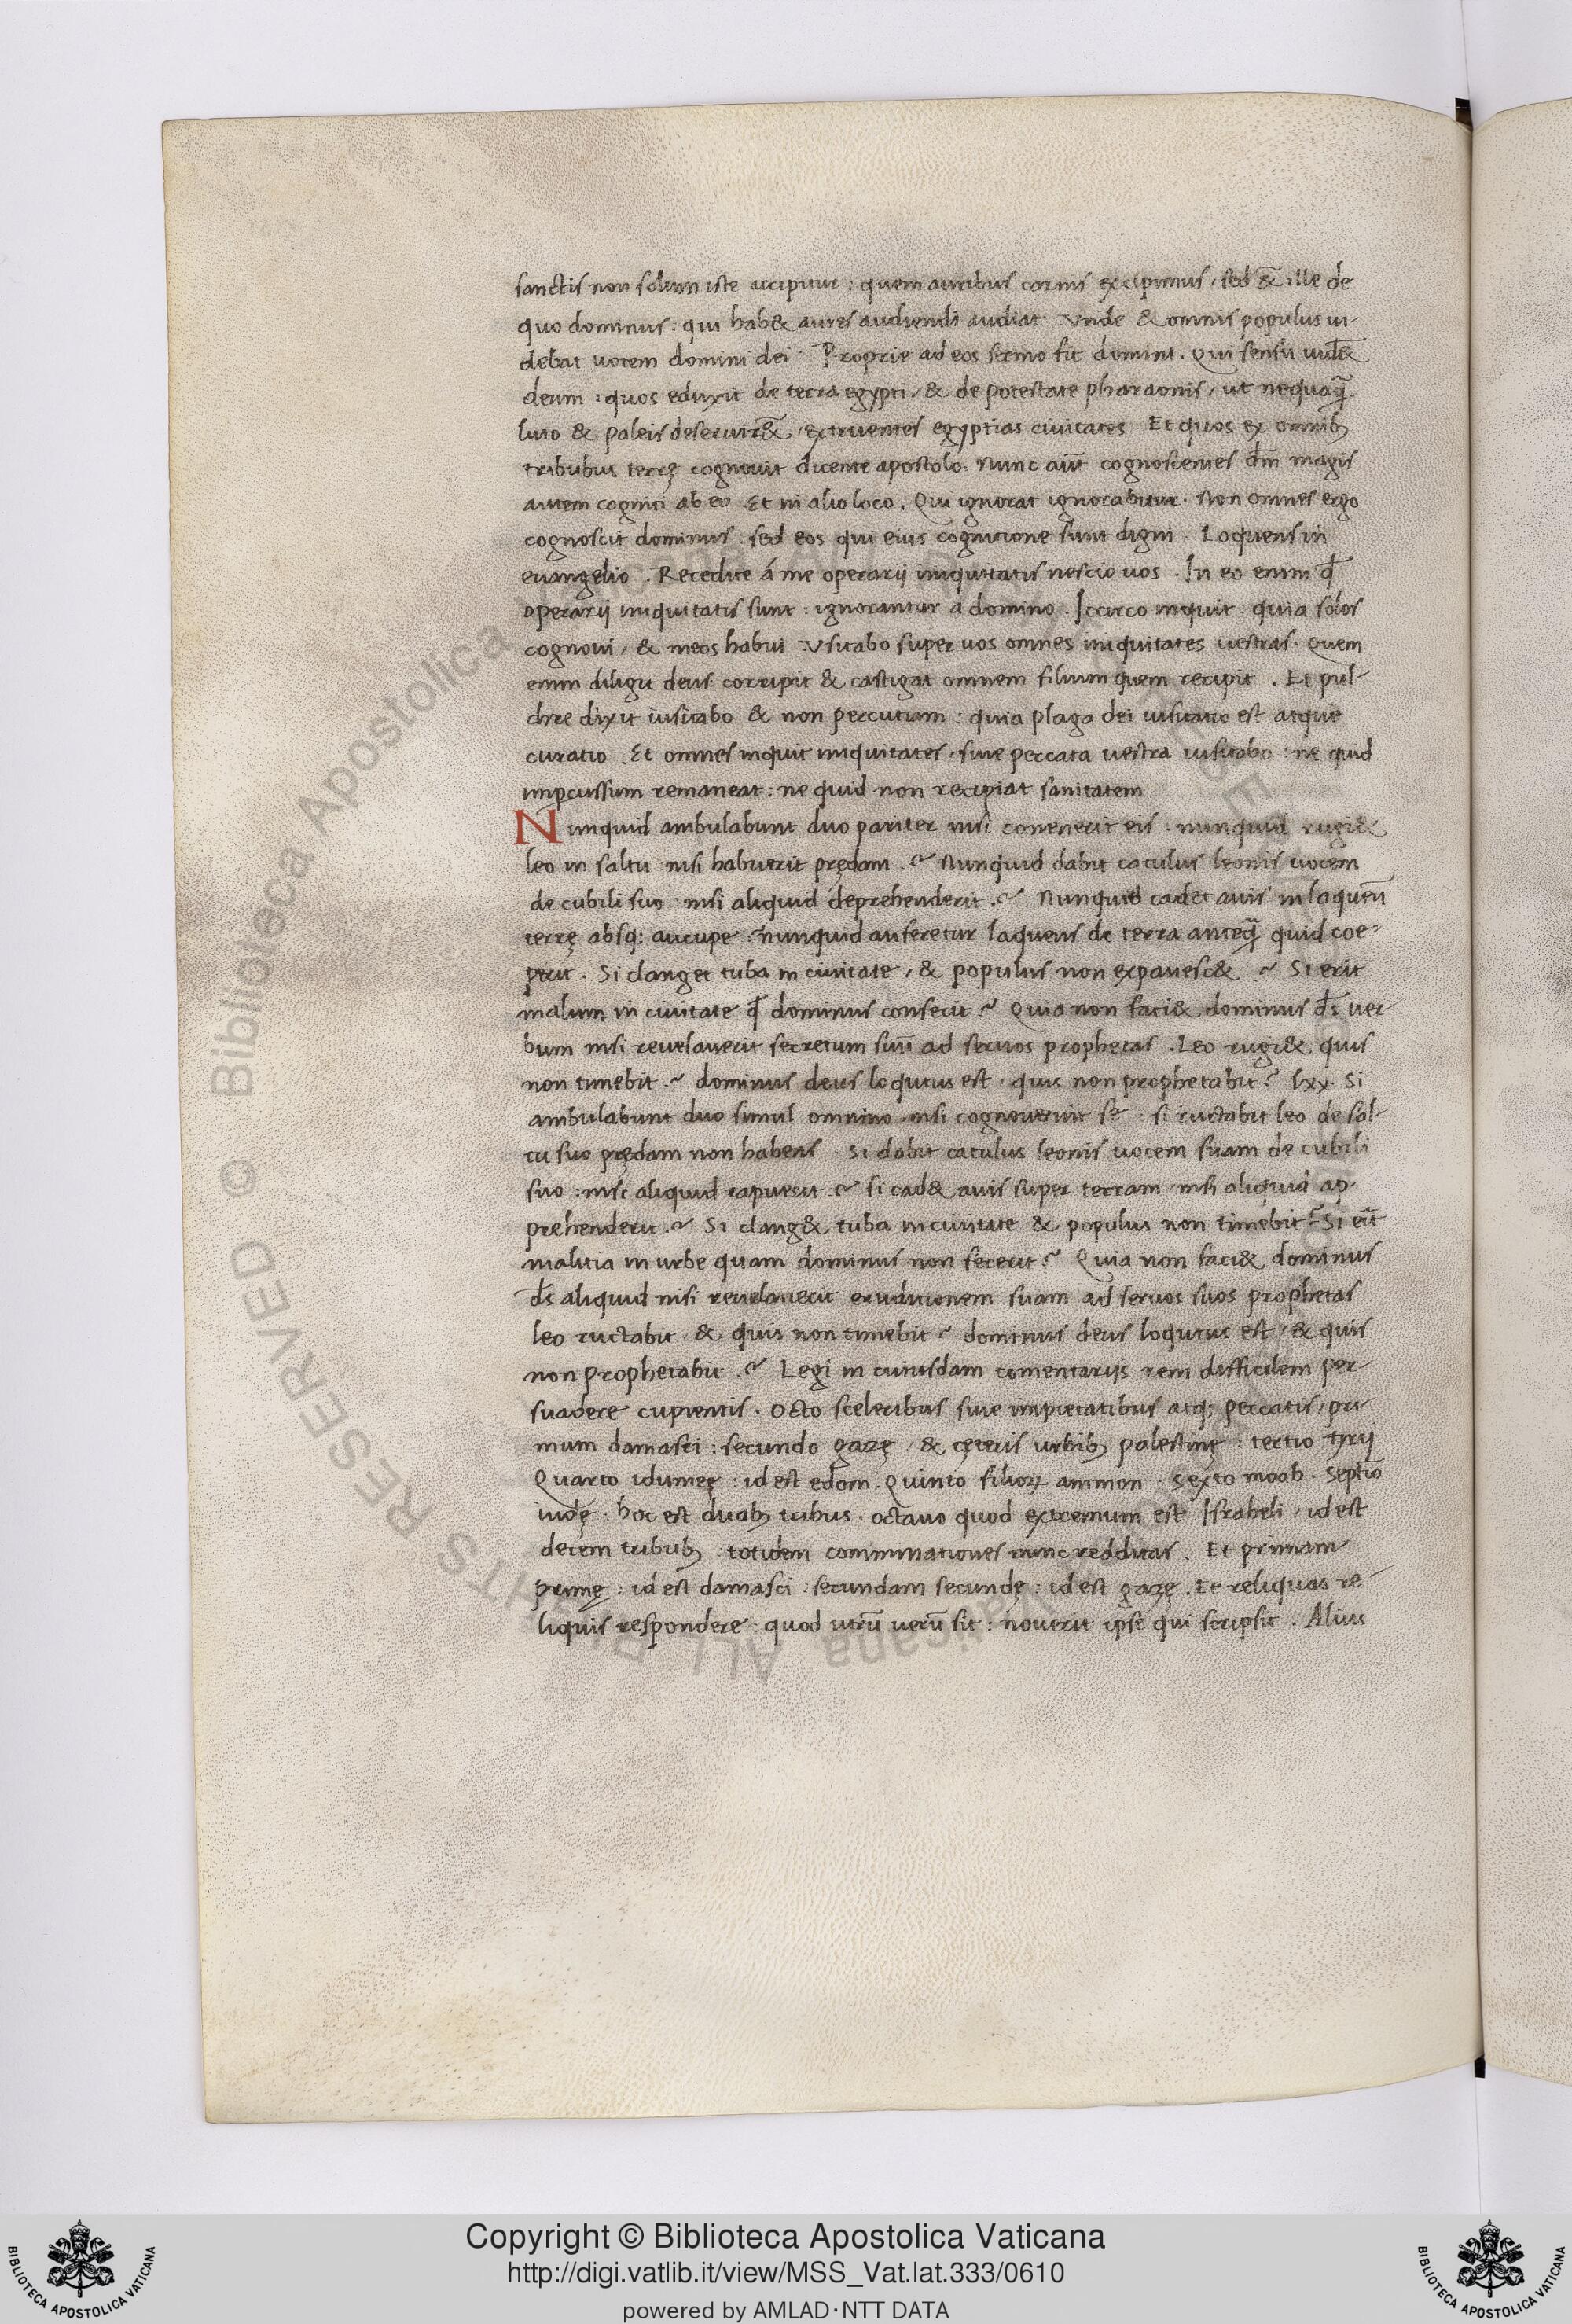 sanctis non solum iste accipitur : quem auribus carnis excipimus , sed & ille de
quo dominus . qui hab& aures audiendi audiat . Vnde & omnis populus ui-
debat uocem domini dei . Proprie ad eos sermo fit domini . Qui sensu uid&
deum : quos eduxit de terra egypti , & de potestate pharaonis , ut nequaq̄
luto & paleis deseruir& , extruentes egyptias ciuitates . Et quos ex omnibȝ
tribubus terrę cognouit dicente apostolo . Nunc aūt cognoscentes dm̄ magis
autem cogniti ab eo . Et in alio loco . Qui ignorat ignorabitur . Non omnes ergo
cognoscit dominus : sed eos qui eius cognitione sunt digni . Loquens in
euangelio . Recedite á me operarij iniquitatis nescio uos . In eo enim q̄
operarij iniquitatis sunt : ignorantur a domino . Iccirco inquit : quia solos
cognoui , & meos habui . Visitabo super uos omnes iniquitates uestras . Quem
enim diligit deus corripit & castigat omnem filium quem recipit . Et pul-
chre dixit uisitabo & non percutiam : quia plaga dei uisitatio est atque
curatio . Et omnes inquit iniquitates , siue peccata uestra uisitabo : ne quid
imꝑcussum remaneat : ne quid non recipiat sanitatem
Nunquid ambulabunt duo pariter nisi conenerit eis . nunquid rugi&
leo in saltu nisi habuerit prędam . ? Nunquid dabit catulus leonis uocem
de cubili suo nisi aliquid deprehenderit . ? Nunquid cadet auis in laqueū
terrę absq; aucupe ? nunquid auferetur laqueus de terra anteq̄ quid coe-
perit . Si clanget tuba in ciuitate , & populus non expauesc& ? Si erit
malum in ciuitate q̄ dominus consecit ? Quia non faci& dominus ds̄ uer-
bum nisi reuelauerit secretum suū ad seruos prophetas . Leo rugi& quis
non timebit ? dominus deus loqutus est , quis non prophetabit ? lxx . Si
ambulabunt duo simul omnino nisi cognouerint se : si ructabit leo de sal-
tu suo prędam non habens . Si dabit catulus leonis uocem suam de cubili
suo : nisi aliquid rapuerit ? si cad& auis super terram nisi aliquid ap-
prehenderit . ? Si clang& tuba in ciuitate & populus non timebit ? Si erit
malitia in urbe quam dominus non fecerit ? Quia non faci& dominus
ds̄ aliquid nisi reuelauerit eruditionem suam ad seruos suos prophetas
leo ructabit & quis non timebit ? dominus deus loqutus est , & quis
non prophetabit . ? Legi in cuiusdam comentarijs rem difficilem per-
suadere cupientis . Octo sceleribus siue impietatibus atq; peccatis , pri-
mum damasci : secundo gazę , & cęteris urbibȝ palestinę : tertio tyrij
Quarto idumeę : id est edom . Quinto filioꝝ ammon . Sexto moab . Septīo
iudę . hoc est duabȝ tribus . octauo quod extremum est Israheli , id est
decem tribubȝ totidem comminationes nunc redditas . Et primam
primę : id est damasci . secundam secundę : id est gazę . Et reliquas re-
liquis respondere : quod utrū uerū sit : nouerit ipse qui scripsit . Alius
© Biblioteca Apostolica Vaticana ALL RIGHTS RESERVED
Copyright © Biblioteca Apostolica Vaticana
http://digi.vatlib.it/view/MSS_Vat.lat.333/0610
powered by AMLAD·NTT DATA
BIBLIOTECA APOSTOLICA VATICANA
BIBLIOTECA APOSTOLICA VATICANA